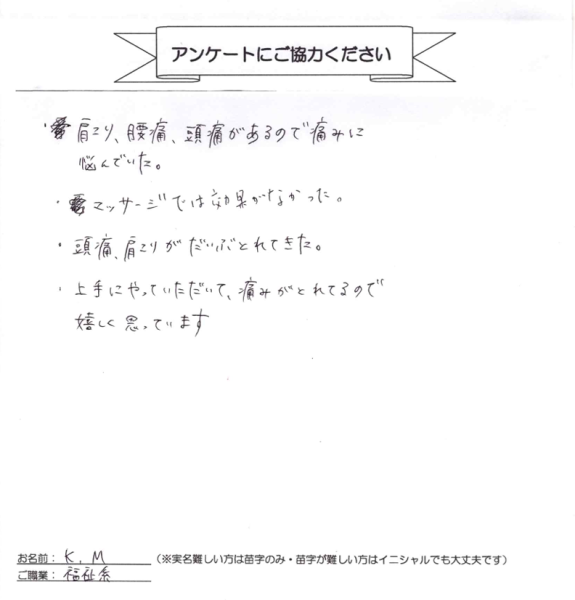 アンケートにご協力ください
・肩こり、腰痛、頭痛があるので痛みに
悩んでいた。
・マッサージでは効果がなかった。
・頭痛、肩こりがだいぶとれてきた。
・上手にやっていただいて、痛みがとれてるので
嬉しく思っています
お名前： K. M （※実名難しい方は苗字のみ・苗字が難しい方はイニシャルでも大丈夫です）
ご職業： 福祉系